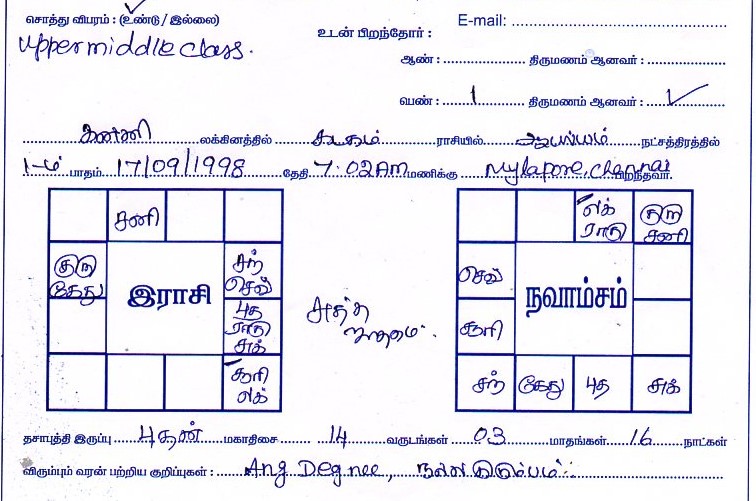 சொத்து விபரம் : (உண்டு / இல்லை)
Upper middle class.
உடன் பிறந்தோர் :
E-mail:
ஆண் : திருமணம் ஆனவர் :
பெண் : 1 திருமணம் ஆனவர் : ✓
கன்னி லக்கினத்தில் கடகம் ராசியில் ஆயில்யம் நட்சத்திரத்தில்
1-ம் பாதம் 17/09/1998 தேதி 7.02Am மணிக்கு Mylapore, Chennai பிறந்தவர்.
சனி
குரு
கேது
சந்
செவ்
புத
ராகு
சுக்
சூரி
லக்
இராசி
லக்
ராகு
குரு
சனி
செவ்
சூரி
சந்
கேது
புத
சுக்
நவாம்சம்
தசாபுத்தி இருப்பு புதன் மகாதிசை 14 வருடங்கள் 03 மாதங்கள் 16 நாட்கள்
விரும்பும் வரன் பற்றிய குறிப்புகள் : Any Degree, நல்ல குடும்பம்.